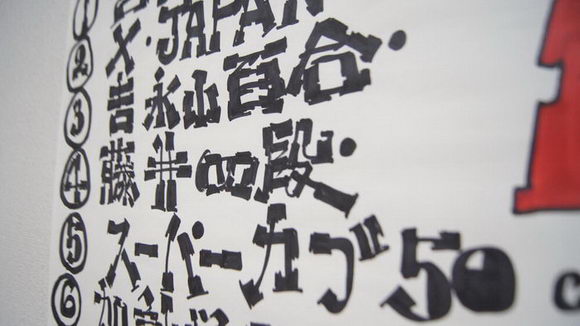 ①
②父・JAPAN
③吉永山百合・
④藤井∞段・
⑤スーパーカブ50
⑥加